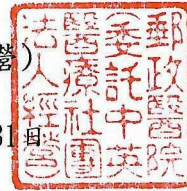 營)
31日
郵政醫院
(委託中英
醫療社團
法人經營)